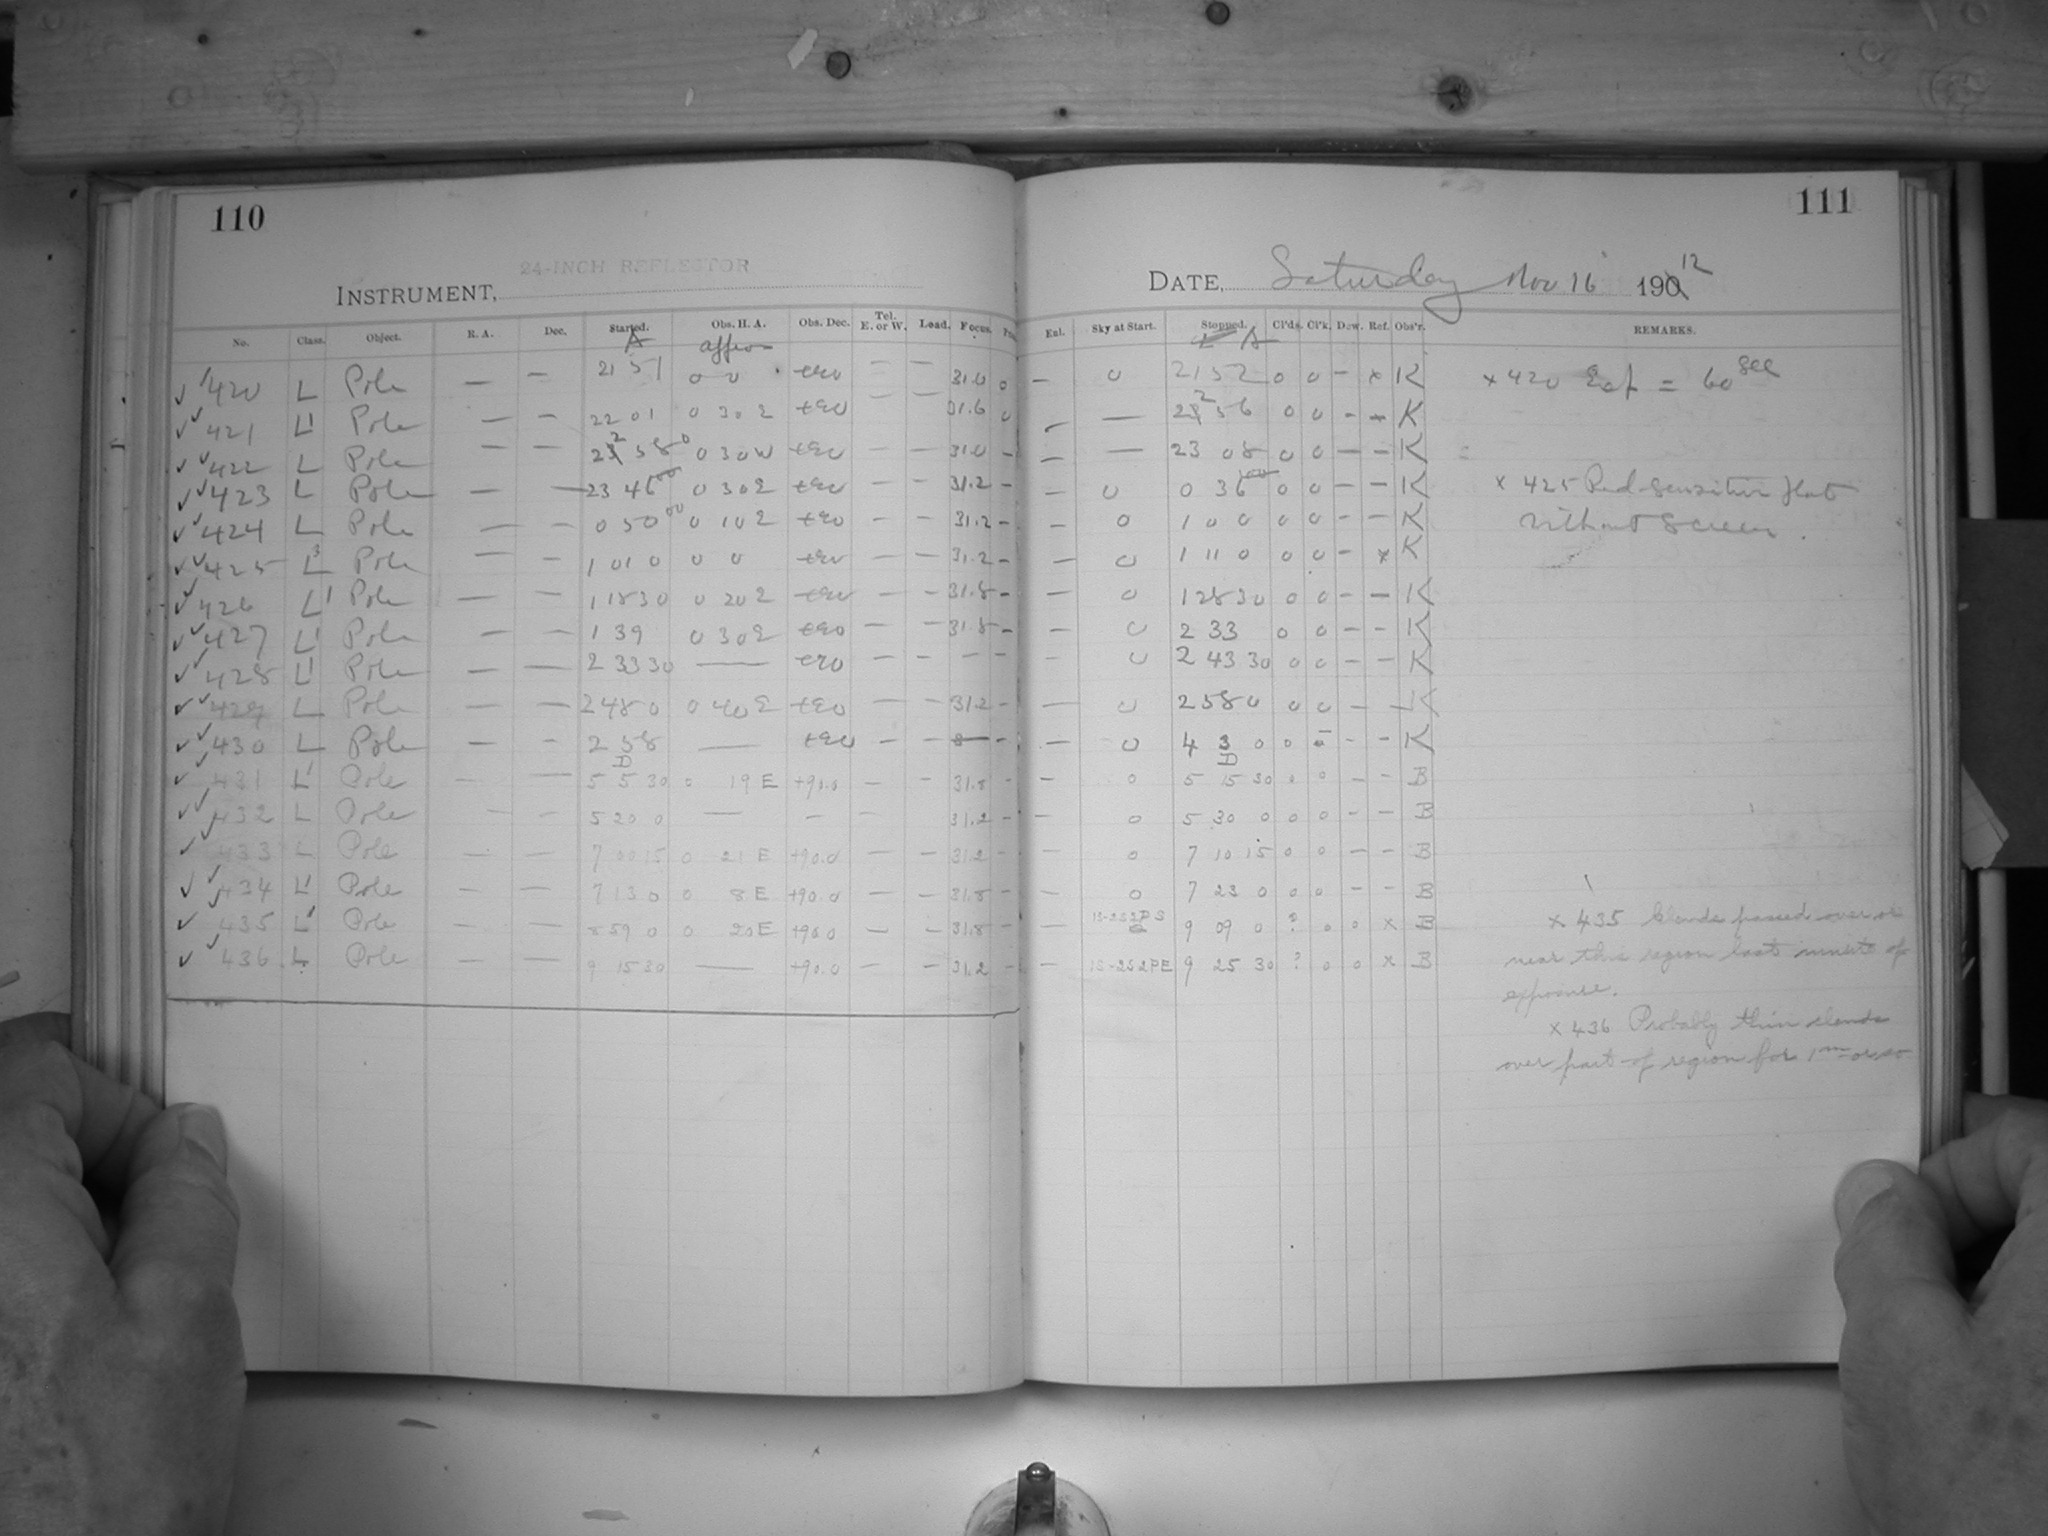 110
24-INCH REFLECTOR
INSTRUMENT,
No. Class. Object. R. A. Dec. Started. Obs. H. A. Obs. Dec. Tel. E. or W. Load. Focus.
A
420 L Pole — — 21 51 0 0 +90 — — 31.0 0
421 L' Pole — — 22 01 0 30 E +90 31.6 0
422 L Pole — — 22 58 0 0 30 W +90 — — 31.0 —
423 L Pole — — 23 46 00 0 30 E +90 — — 31.2 —
424 L Pole — — 0 50 00 0 10 E +90 — — 31.2 —
425 L3 Pole — — 1 01 0 0 0 +90 — — 31.2 —
426 L' Pole — — 1 18 30 0 20 E +90 — — 31.8 —
427 L' Pole — — 1 39 0 30 E +90 — — 31.8 —
428 L' Pole — — 2 33 30 — +90 — — — —
429 L Pole — — 2 48 0 0 40 E +90 — — 31.2 —
430 L Pole — — 2 58 — +90 — — —
D
431 L' Pole — — 5 5 30 0 19 E +90.0 — — 31.8 —
432 L Pole — — 5 20 0 — — — — 31.2 —
433 L Pole — — 7 00 15 0 21 E +90.0 — — 31.2 —
434 L' Pole — — 7 13 0 0 8 E +90.0 — — 31.8 —
435 L' Pole — — 8 59 0 0 20 E +90.0 — — 31.8 —
436 L Pole — — 9 15 30 — +90.0 — — 31.2 —
111
DATE, Saturday Nov 16 1912
Enl. Sky at Start. Stopped. Cl'ds. Cl'k. Dew. Ref. Obs'r. REMARKS.
A
— 0 21 52 0 0 — x K
— — 22 56 0 0 — — K
— — 23 08 0 0 — — K
— 0 0 36 00 0 0 — — K
— 0 1 0 0 0 0 — — K
— 0 1 11 0 0 0 — x K
— 0 1 28 30 0 0 — — K
— 0 2 33 0 0 — — K
— 0 2 43 30 0 0 — — K
— 0 2 58 0 0 0 — — K
— 0 4 3 0 0 — — K
D
— 0 5 15 30 0 0 — — B
— 0 5 30 0 0 0 — — B
— 0 7 10 15 0 0 — — B
— 0 7 23 0 0 0 — — B
— 9 09 0 ? 0 0 x B
— 9 25 30 ? 0 0 x B
x 420 = 60 sec
x 425 Red Sensitive
without Screen.
x 435 Clouds passed over or
near this region last minute of
exposure.
x 436 Probably thin clouds
over part of region for 1m or so